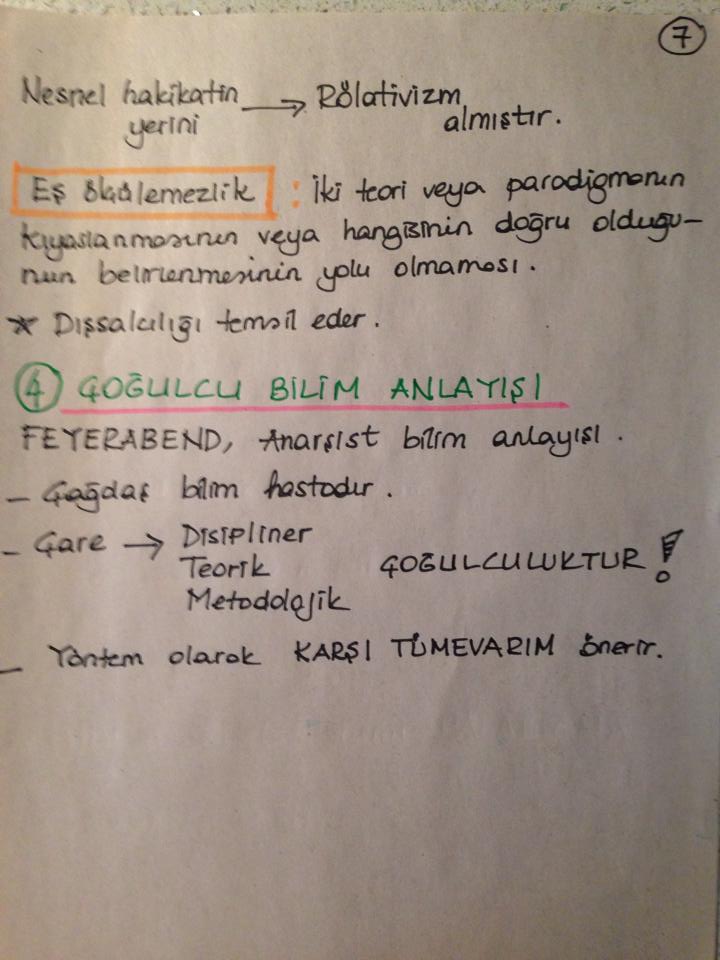 7
Nesnel hakikatin → Rölativizm
yerini almıştır.
Eş ölçülemezlik : İki teori veya paradigmanın
kıyaslanmasının veya hangisinin doğru olduğu-
nun belirlenmesinin yolu olmaması.
* Dışsalcılığı temsil eder.
4 ÇOĞULCU BİLİM ANLAYIŞI
FEYERABEND, Anarşist bilim anlayışı.
- Çağdaş bilim hastadır.
- Çare → Disipliner
Teorik ÇOĞULCULUKTUR!
Metodolojik
- Yöntem olarak KARŞI TÜMEVARIM önerir.